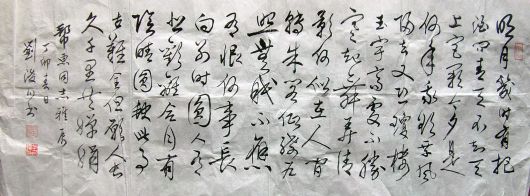 明月幾時有把
酒問青天不知天
上宮闕今夕是
何年我欲乘風
歸去又恐瓊樓
玉宇高處不勝
寒起舞弄清
影何似在人間
轉朱閣低綺戶
照無眠不應
有恨何事長
向別時圓人有
悲歡離合月有
陰晴圓缺此事
古難全但願人長
久千里共嬋娟
同志雅屬
丁卯春日
劉